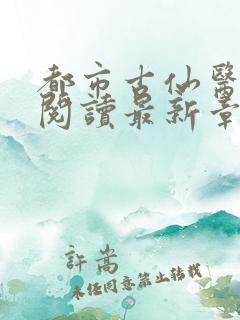 都市古仙醫
閱讀最新章
許嵩
未經同意禁止轉載